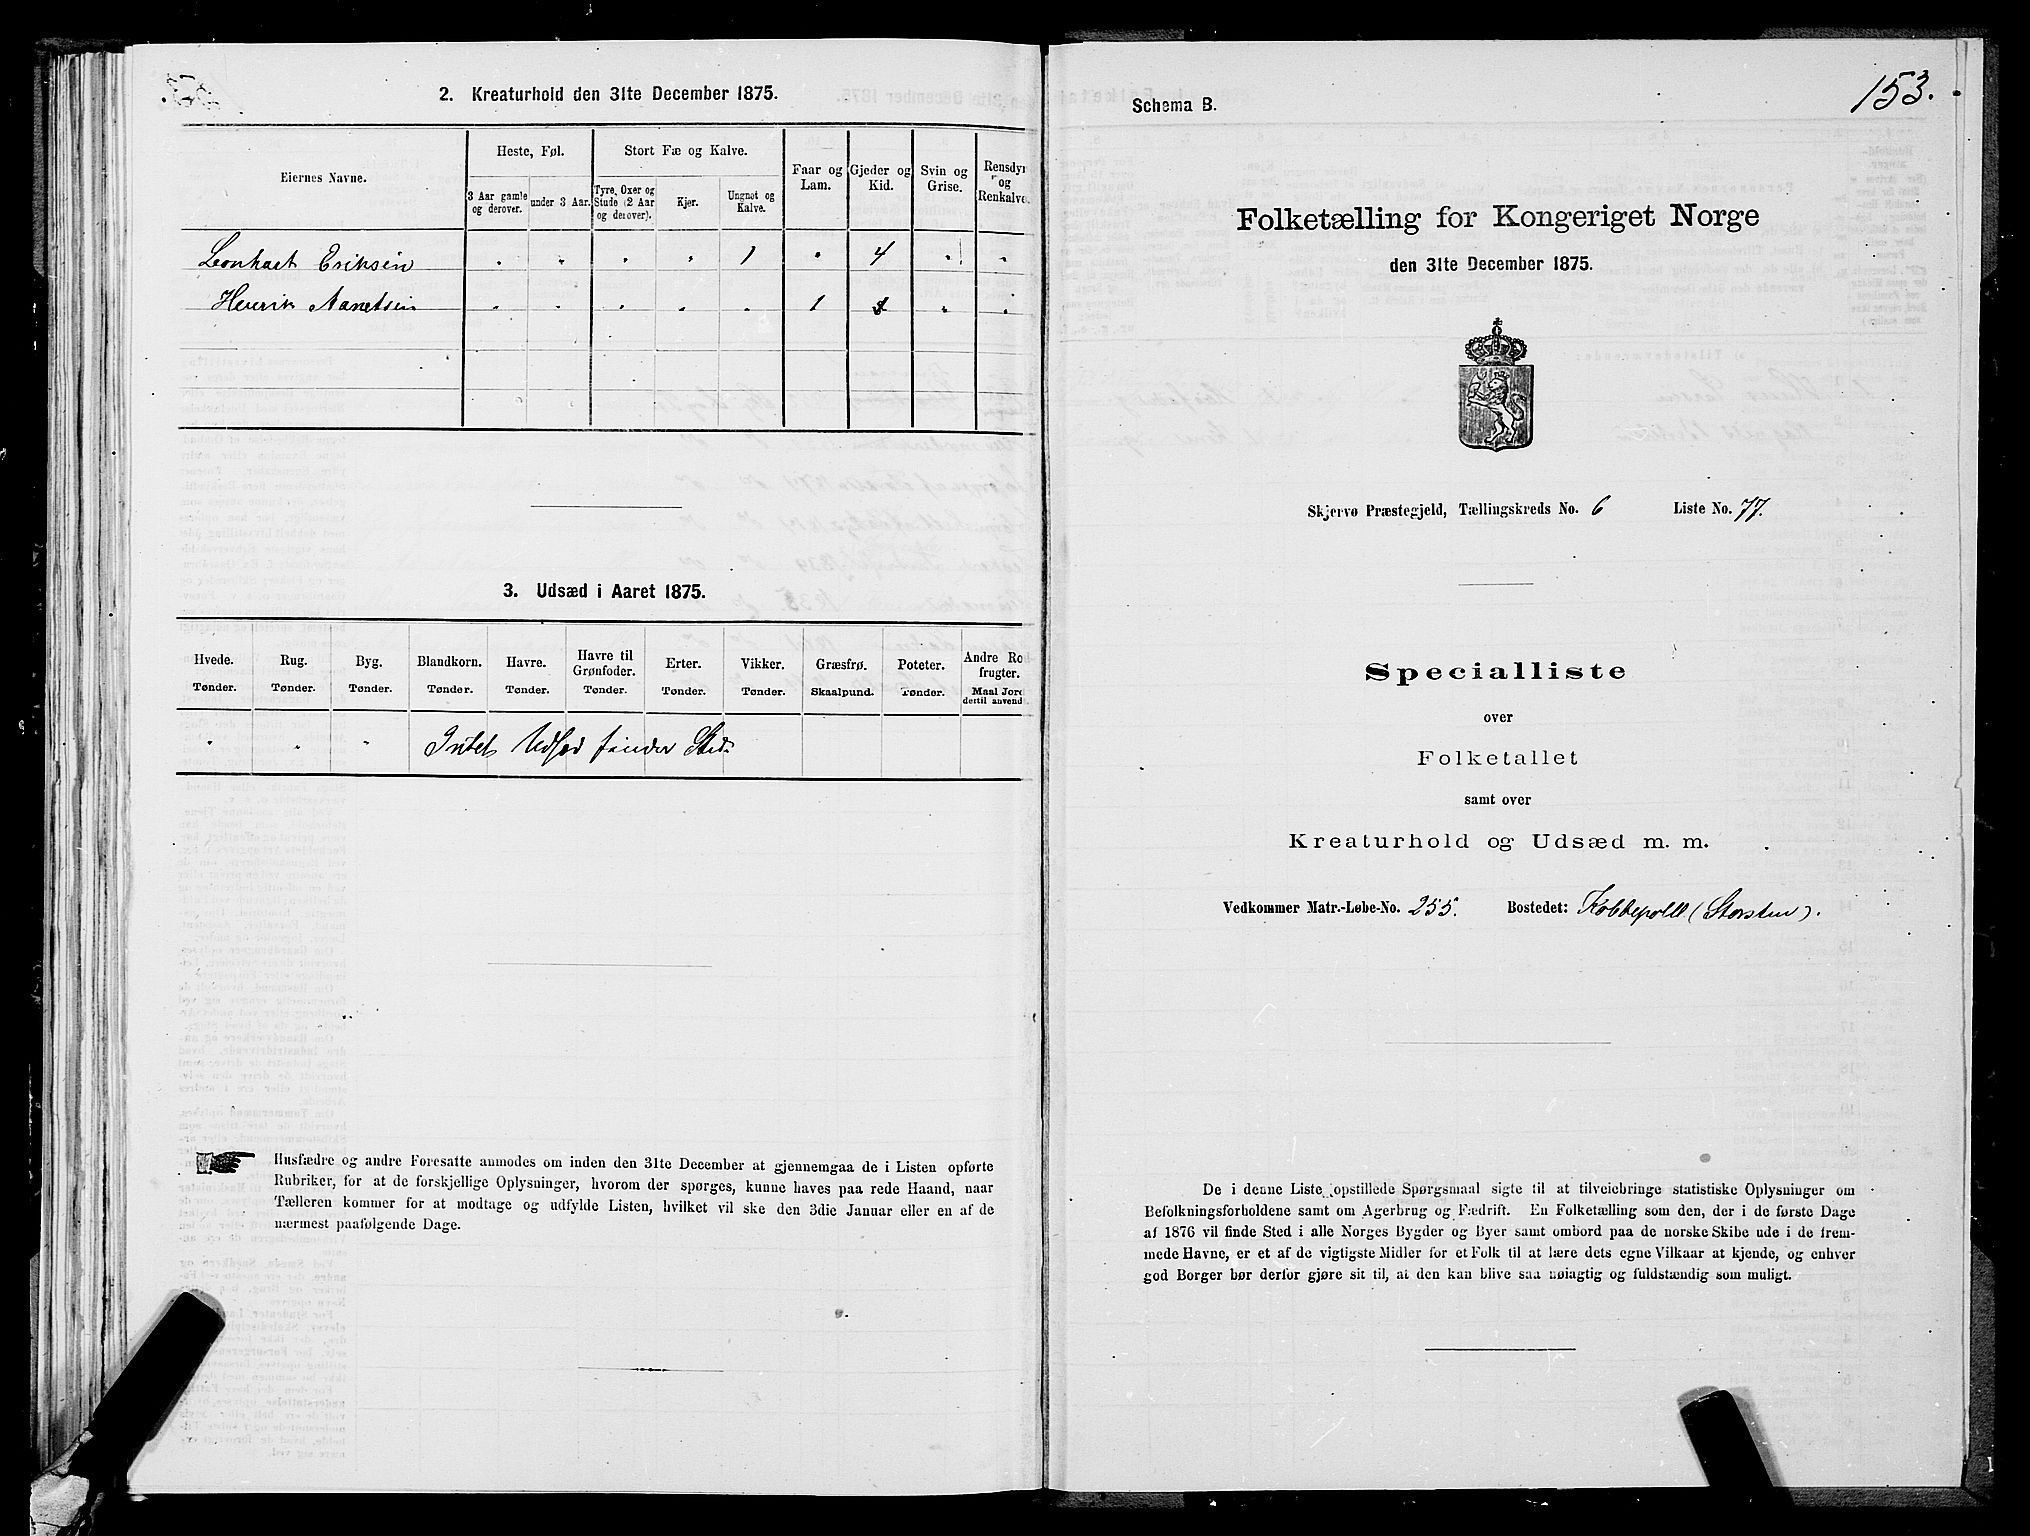 2. Kreaturhold den 31te December 1875.
Eiernes Navne.
Heste, Føl.
Stort Fæ og Kalve.
Faar og Lam.
Gjeder og Kid.
Svin og Grise.
Rensdyr og Renkalve.
3 Aar gamle og derover.
under 3 Aar.
Tyre, Oxer og Stude (2 Aar og derover).
Kjer.
Ungnøt og Kalve.
Leonhart Eriksen " " " " 1 " 4 " "
Henrik " " " " " 1 " "
3. Udsæd i Aaret 1875.
Hvede. Rug. Byg. Blandkorn. Havre. Havre til Grønfoder. Erter. Vikker. Græsfrø. Poteter. Andre Ro frugter.
Tønder. Tønder. Tønder. Tønder. Tønder. Tønder. Tønder. Tønder. Skaalpund. Tønder. Maal Jord dertil anvend
" " " Intet Udsæd finder Sted.
Husfædre og andre Foresatte anmodes om inden den 31te December at gjennemgaa de i Listen opførte
Rubriker, for at de forskjellige Oplysninger, hvorom der spørges, kunne haves paa rede Haand, naar
Tælleren kommer for at modtage og udfylde Listen, hvilket vil ske den 3die Januar eller en af de
nærmest paafølgende Dage.
153.
Schema B.
Folketælling for Kongeriget Norge
den 31te December 1875.
Skjervø Præstegjeld, Tællingskreds No. 6 Liste No. 77.
Specialliste
over
Folketallet
samt over
Kreaturhold og Udsæd m. m.
Vedkommer Matr.-Løbe-No. 255. Bostedet: Kobbepold (Storsten).
De i denne Liste opstillede Spørgsmaal sigte til at tilveiebringe statistiske Oplysninger om
Befolkningsforholdene samt om Agerbrug og Fædrift. En Folketælling som den, der i de første Dage
af 1876 vil finde Sted i alle Norges Bygder og Byer samt ombord paa de norske Skibe ude i de frem-
mede Havne, er et af de vigtigste Midler for et Folk til at lære dets egne Vilkaar at kjende, og enhver
god Borger bør derfor gjøre sit til, at den kan blive saa nøiagtig og fuldstændig som muligt.